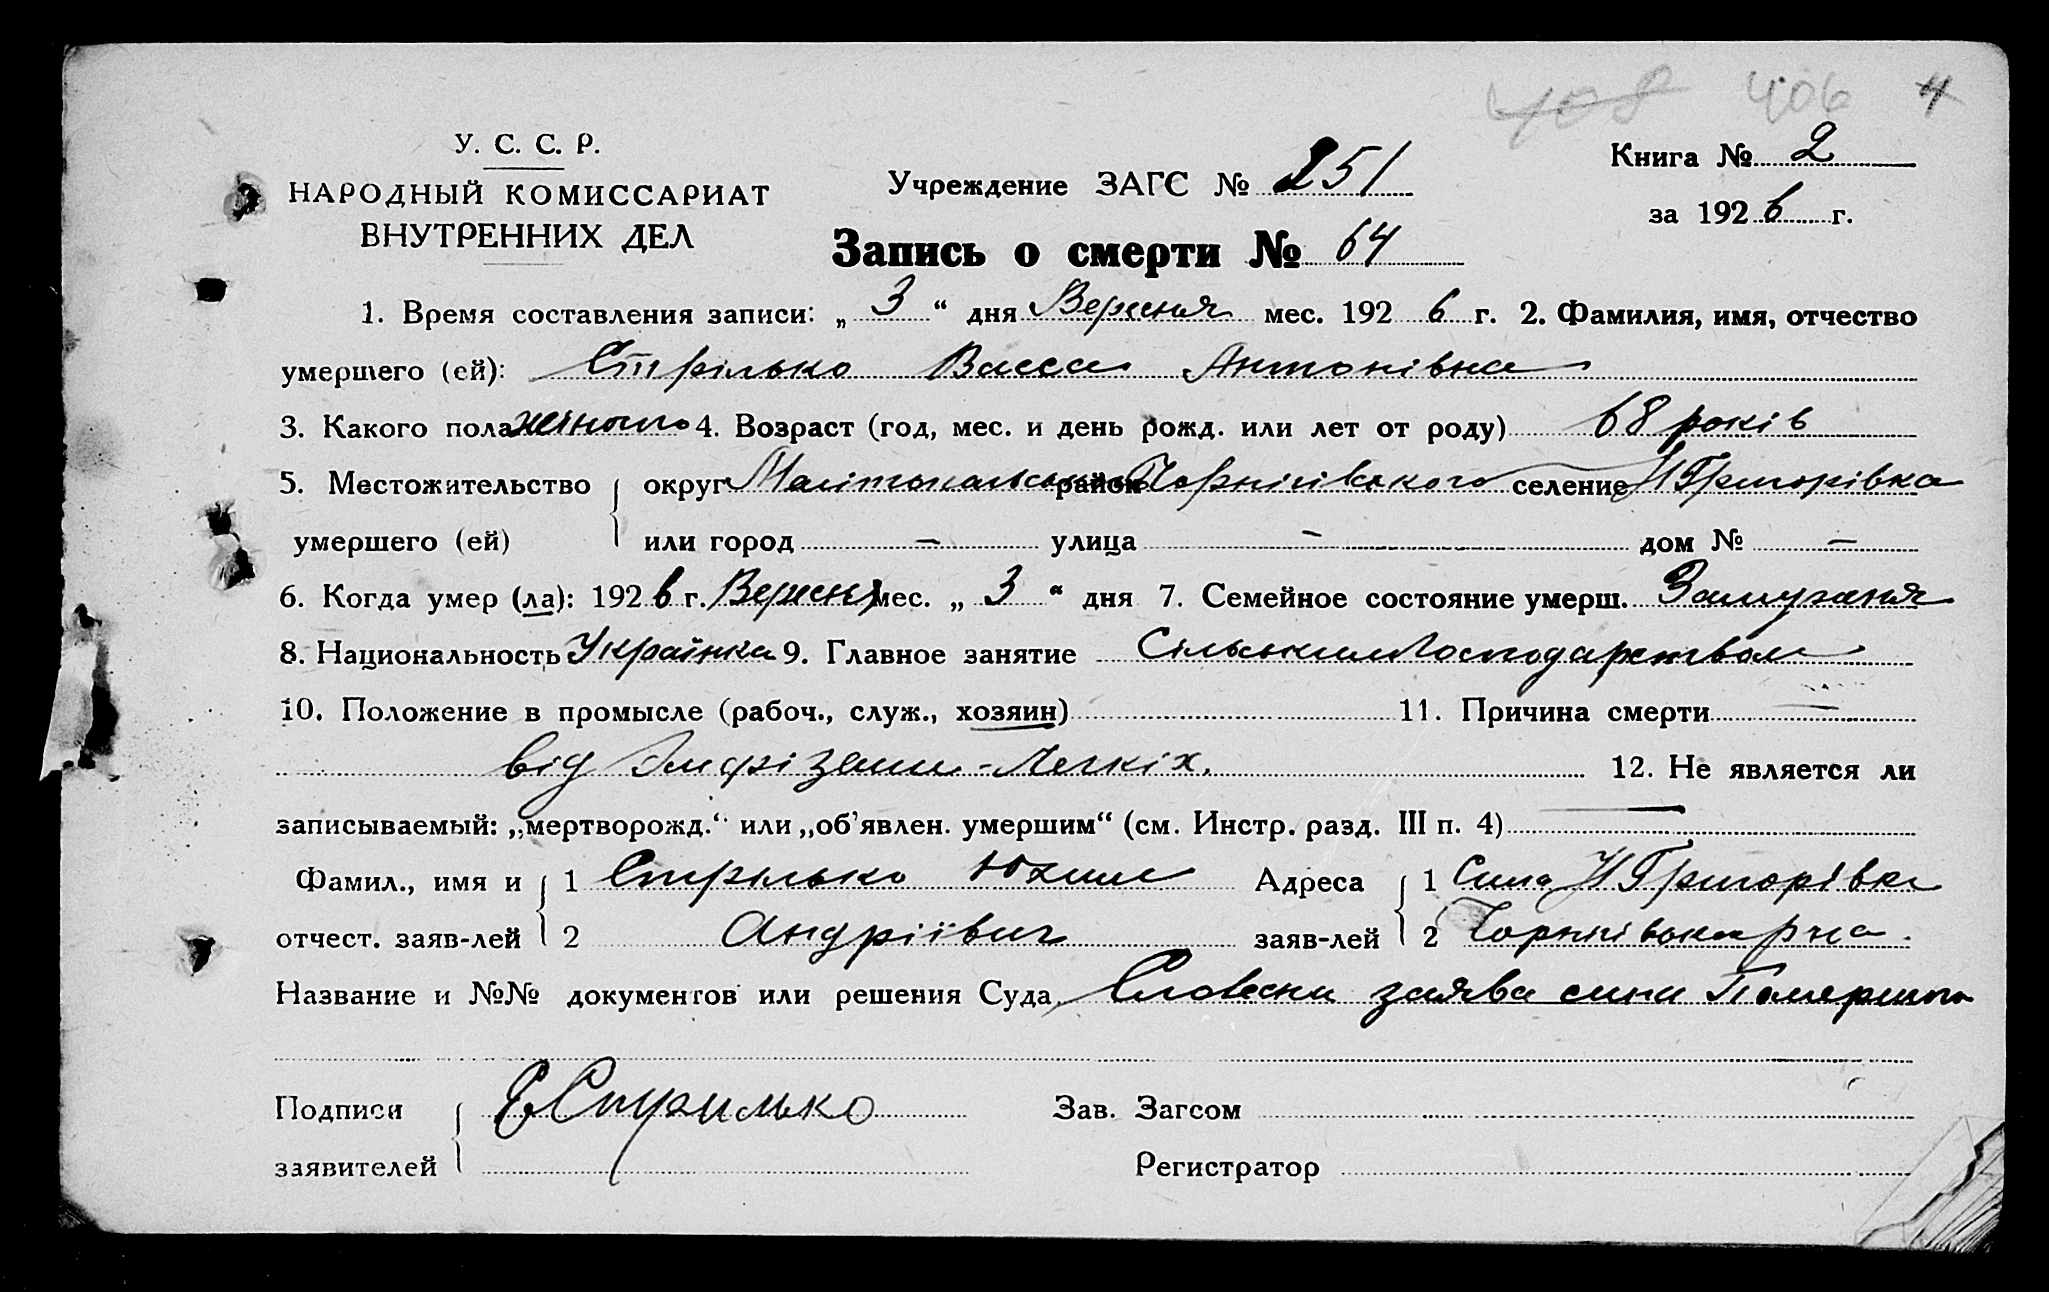 408 406 4
У. С. С. Р.
НАРОДНЫЙ КОМИССАРИАТ
ВНУТРЕННИХ ДЕЛ
Учреждение ЗАГС № 251
Книга № 2
за 1926 г.
Запись о смерти № 64
1. Время составления записи: „ 3 “ дня Вересня мес. 1926 г. 2. Фамилия, имя, отчество
умершего (ей): Стрілько Васса Антонівна
3. Какого пола жіночого 4. Возраст (год, мес. и день рожд. или лет от роду) 68 років
5. Местожительство округ Мелітопольського район Чернігівського селение Н Григорівка
умершего (ей) или город – улица – дом № –
6. Когда умер (ла): 1926 г. Вересня мес. „ 3 “ дня 7. Семейное состояние умерш. Замужня
8. Национальность Українка 9. Главное занятие Сільським Господарством
10. Положение в промысле (рабоч., служ., хозяин) 11. Причина смерти
від Емфіземи - Легких. 12. Не является ли
записываемый: „мертворожд.“ или „об'явлен. умершим“ (см. Инстр. разд. III п. 4) —
Фамил., имя и 1 Стрілько Юхим Адреса 1 Села Н Григорівка
отчест. заяв-лей 2 Андріївич заяв-лей 2 Чернігівськ р-на.
Название и №№ документов или решения Суда Словесна заява сина Помершого
Подписи Е Стрилько Зав. Загсом
заявителей Регистратор